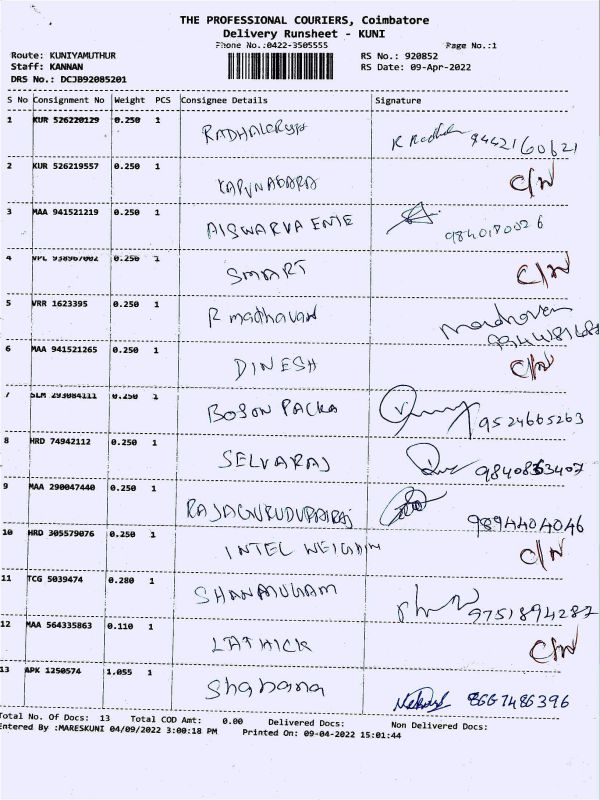 THE PROFESSIONAL COURIERS, Coimbatore
Delivery Runsheet - KUNI
Phone No.:0422-3505555 Page No.:1
Route: KUNIYAMUTHUR RS No.: 920852
Staff: KANNAN RS Date: 09-Apr-2022
DRS No.: DCJB92085201
S No Consignment No Weight PCS Consignee Details Signature
1 KUR 526220129 0.250 1
K Radha 9442160621
2 KUR 526219557 0.250 1 C/N
3 MAA 941521219 0.250 1 AISWARYA ENTE
9840180026
4 VPL 938967002 0.250 1 SMART C/N
5 VRR 1623395 0.250 1 R madhavan madhavan
6 MAA 941521265 0.250 1 DINESH C/N
7 SLM 293084111 0.250 1 BOSON PACKA 9524665263
8 HRD 74942112 0.250 1 SELVARAJ 9840863407
9 MAA 290047440 0.250 1 9894404046
10 HRD 305579076 0.250 1 INTEL C/N
11 TCG 5039474 0.280 1 SHANMUGAM 9751894287
12 MAA 564335863 0.110 1 LATHICK C/N
13 APK 1250574 1.055 1 Shabana 8667486396
Total No. Of Docs: 13 Total COD Amt: 0.00 Delivered Docs: Non Delivered Docs:
Entered By :MARESKUNI 04/09/2022 3:00:18 PM Printed On: 09-04-2022 15:01:44